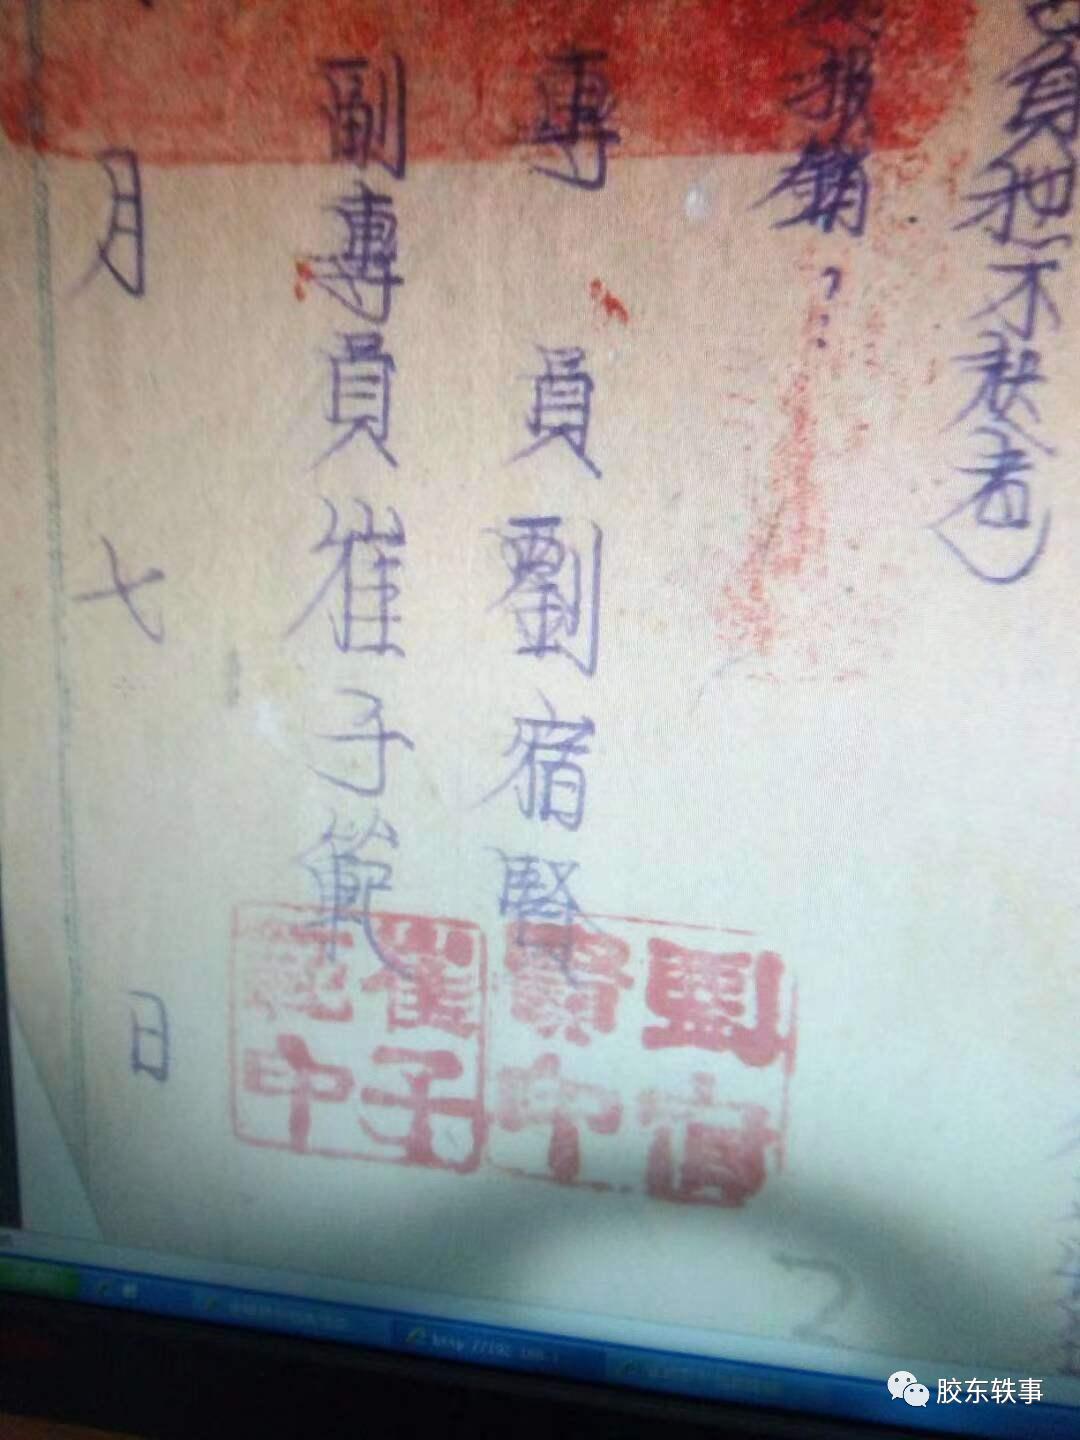 員和不教者）
報銷？：
專員劉宿賢
副專員崔子範
月七日
劉宿賢印
崔子範印
2
胶东轶事